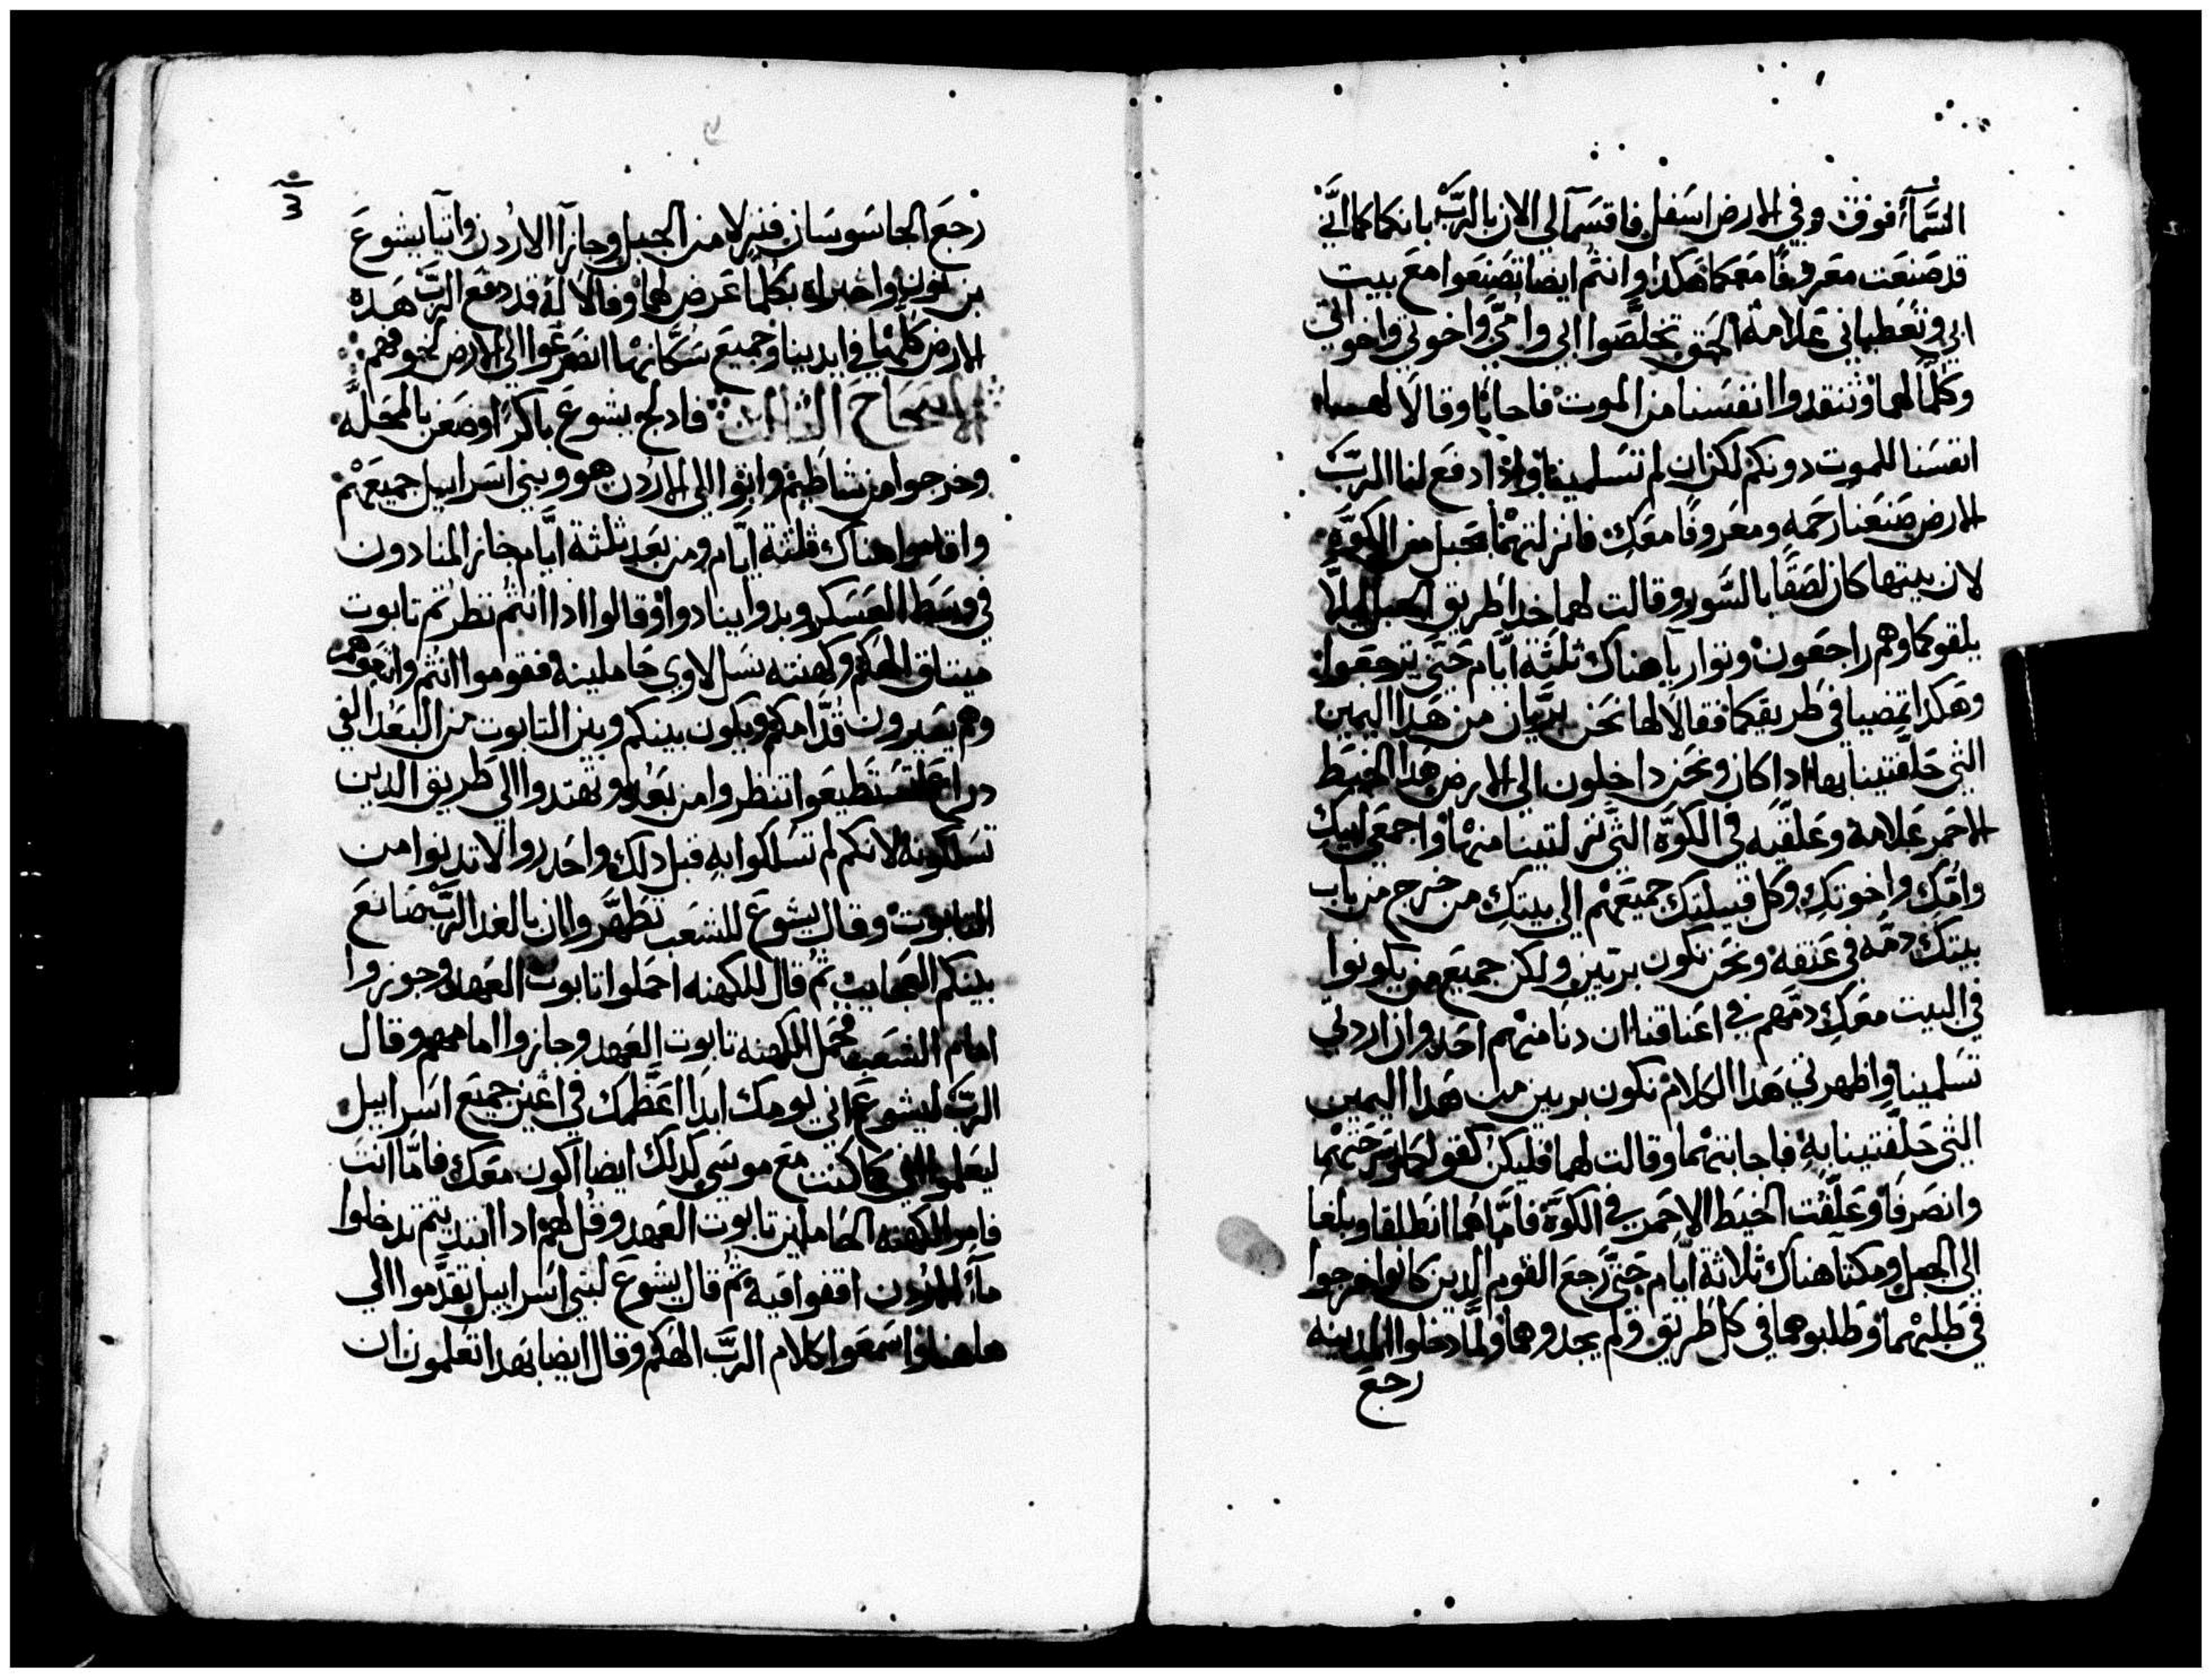 السَّمآء فوق وفي الارض اسفل فاقسمآ لي الان بالربّ بانكما كما انّي
قد صنعت معروفًا معكما هكدا وانتم ايضا تصنعوا مع بيت
ابي وتعطياني علامة الحق تخلّصوا ابي وامّي واخوتي واخواتي
وكلما لهما وتنقدوا انفسنا من الموت فاجابا وقالا لها
انفسنا للموت دونكم لكن ان لم تسلمينا وادا دفع لنا الربّ
الارض صنعنا رحمه ومعروفًا معك فانزلتهما بحبل من الكوّة
لان بيتها كان لصقًا بالسّور وقالت لهما خدا طريق الجبل ليلاّ
يلقوكما وهم راجعون وتواريآ هناك ثلثة ايّام حتى يرجعوا
وهكدا تمضيا في طريقكما فقالا لها نحن بريّان من هدا اليمين
التي حلّفتينا بها ادا كان ونحن داخلون الى الارض هدا الخيط
الاحمر علامة وعلّقيه في الكوّة التي نزلتينا منها واجمعي ابيك
وامّك واخوتك وكل قبيلتك جميعهم الى بيتك من خرج من باب
بيتك دمّه في عنقه ونحن نكون بريّين ولكن جميع من يكونوا
في البيت معك دمّهم في اعناقنا ان دنا منهم احد وان اردتي
تسلمينا واظهرتي هدا الكلام نكون بريين من هدا اليمين
التي حلّفتينا به فاجابتهما وقالت لهما فليكن كقولكما وسرحتهما
وانصرفا وعلّقت الخيط الاحمر في الكوّة فامّا هما انطلقا وبلغا
الى الجبل ومكثا هناك ثلاثة ايّام حتى رجع القوم الدين كانوا خرجوا
في طلبهما وطلبوهما في كل طريق ولم يجدوهما ولمّا دخلوا المدينه
رجع
3
رجع الجاسوسان فنزلا من الجبل وجازآ الاردن واتيا يشوع
بن نون واخبراه بكلما عرض لهما وقالا له قد دفع الربّ هده
الارض كلها في ايدينا وجميع سكّانها انضرعوا الى الارض لخوفهم
الاصحاح الثالث فادلج يشوع باكرًا وضعن بالمحلّه
وخرجوا من شاطيم واتوا الى الاردن هو وبني اسراييل جميعهم
واقاموا هناك ثلثة ايّام ومن بعد ثلثة ايّام جاز المنادون
في وسط العسكر وبدوا ينادوا وقالوا ادا انتم نظرتم تابوت
ميتاق الهكم وكهنته نسل لاوي حاملينه فقوموا انتم واتبعوهم
وهم يسيرون قدّامكم ويكون بينكم وبين التابوت من البعد الفي
دراع لتستطيعوا تنظروا من بعد وتهتدوا الى طريق الدين
تسلكونه لانكم لم تسلكوا به قبل دلك واحدروا لا تدنوا من
التابوت وقال يشوع للشعب تطهّروا لان بالغد الربّ صانع
بينكم العجايب ثم قال للكهنه احملوا تابوت العهد وجوزوا
امام الشعب فحمل الكهنه تابوت العهد وجازوا امامهم وقال
الربّ ليشوع اني يومك ابدا اعظّمك في اعين جميع اسراييل
ليعلموا اني كما كنت مع موسى كدلك ايضا اكون معك فامّا انت
فامر الكهنه الحاملين تابوت العهد وقل لهم ادا ابتديتم تدخلوا
مآء الاردن اقفوا فيه ثم قال يشوع لبني اسراييل تقدّموا الى
هاهنا واسمعوا كلام الربّ الهكم وقال ايضا بهدا تعلمون ان